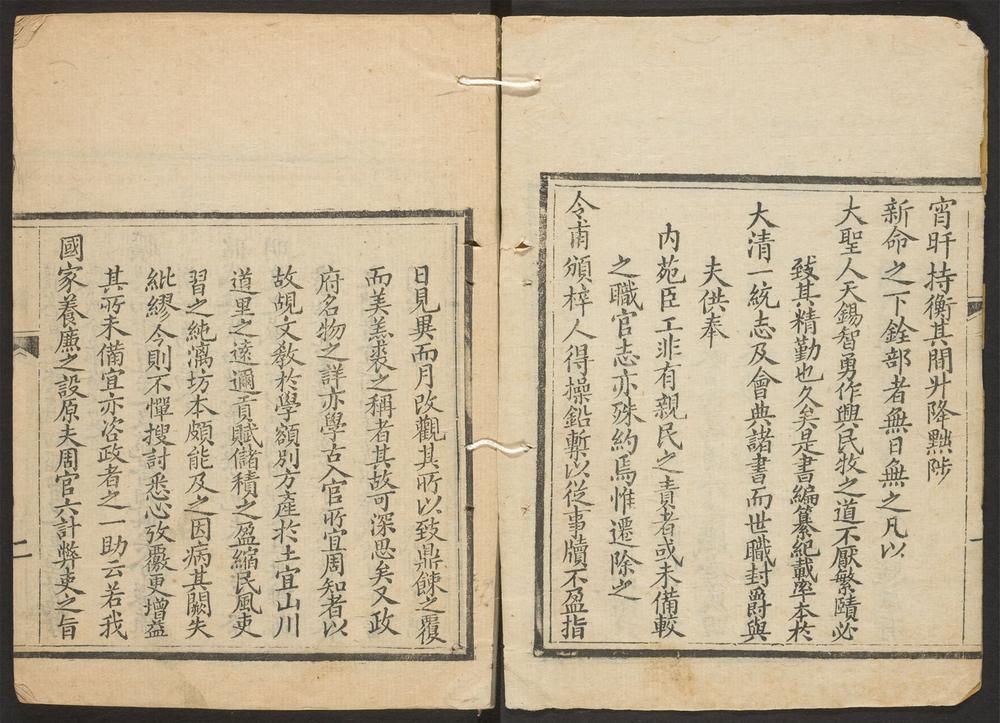 宵旰持衡其間升降黜陟
新命之下銓部者無日無之凡以
大聖人天錫智勇作興民牧之道不厭繁賾必
致其精勤也久矣是書編纂紀載率本於
大清一統志及會典諸書而世職封爵與
夫供奉
內苑臣工非有親民之責者或未備較
之職官志亦殊約焉惟遷除之
令甫頒梓人得操鉛槧以從事牘不盈指
一
日見異而月改觀其所以致鼎餗之覆
而美羔裘之稱者其故可深思矣又政
府名物之詳亦學古入官所宜周知者以
故覘文教於學額別方產於土宜山川
道里之遠邇貢賦儲積之盈縮民風吏
習之純漓坊本頗能及之因病其闕失
紕繆今則不憚搜討悉心攷覈更增益
其所未備宜亦咨政者之一助云若我
國家養廉之設原夫周官六計弊吏之旨
二